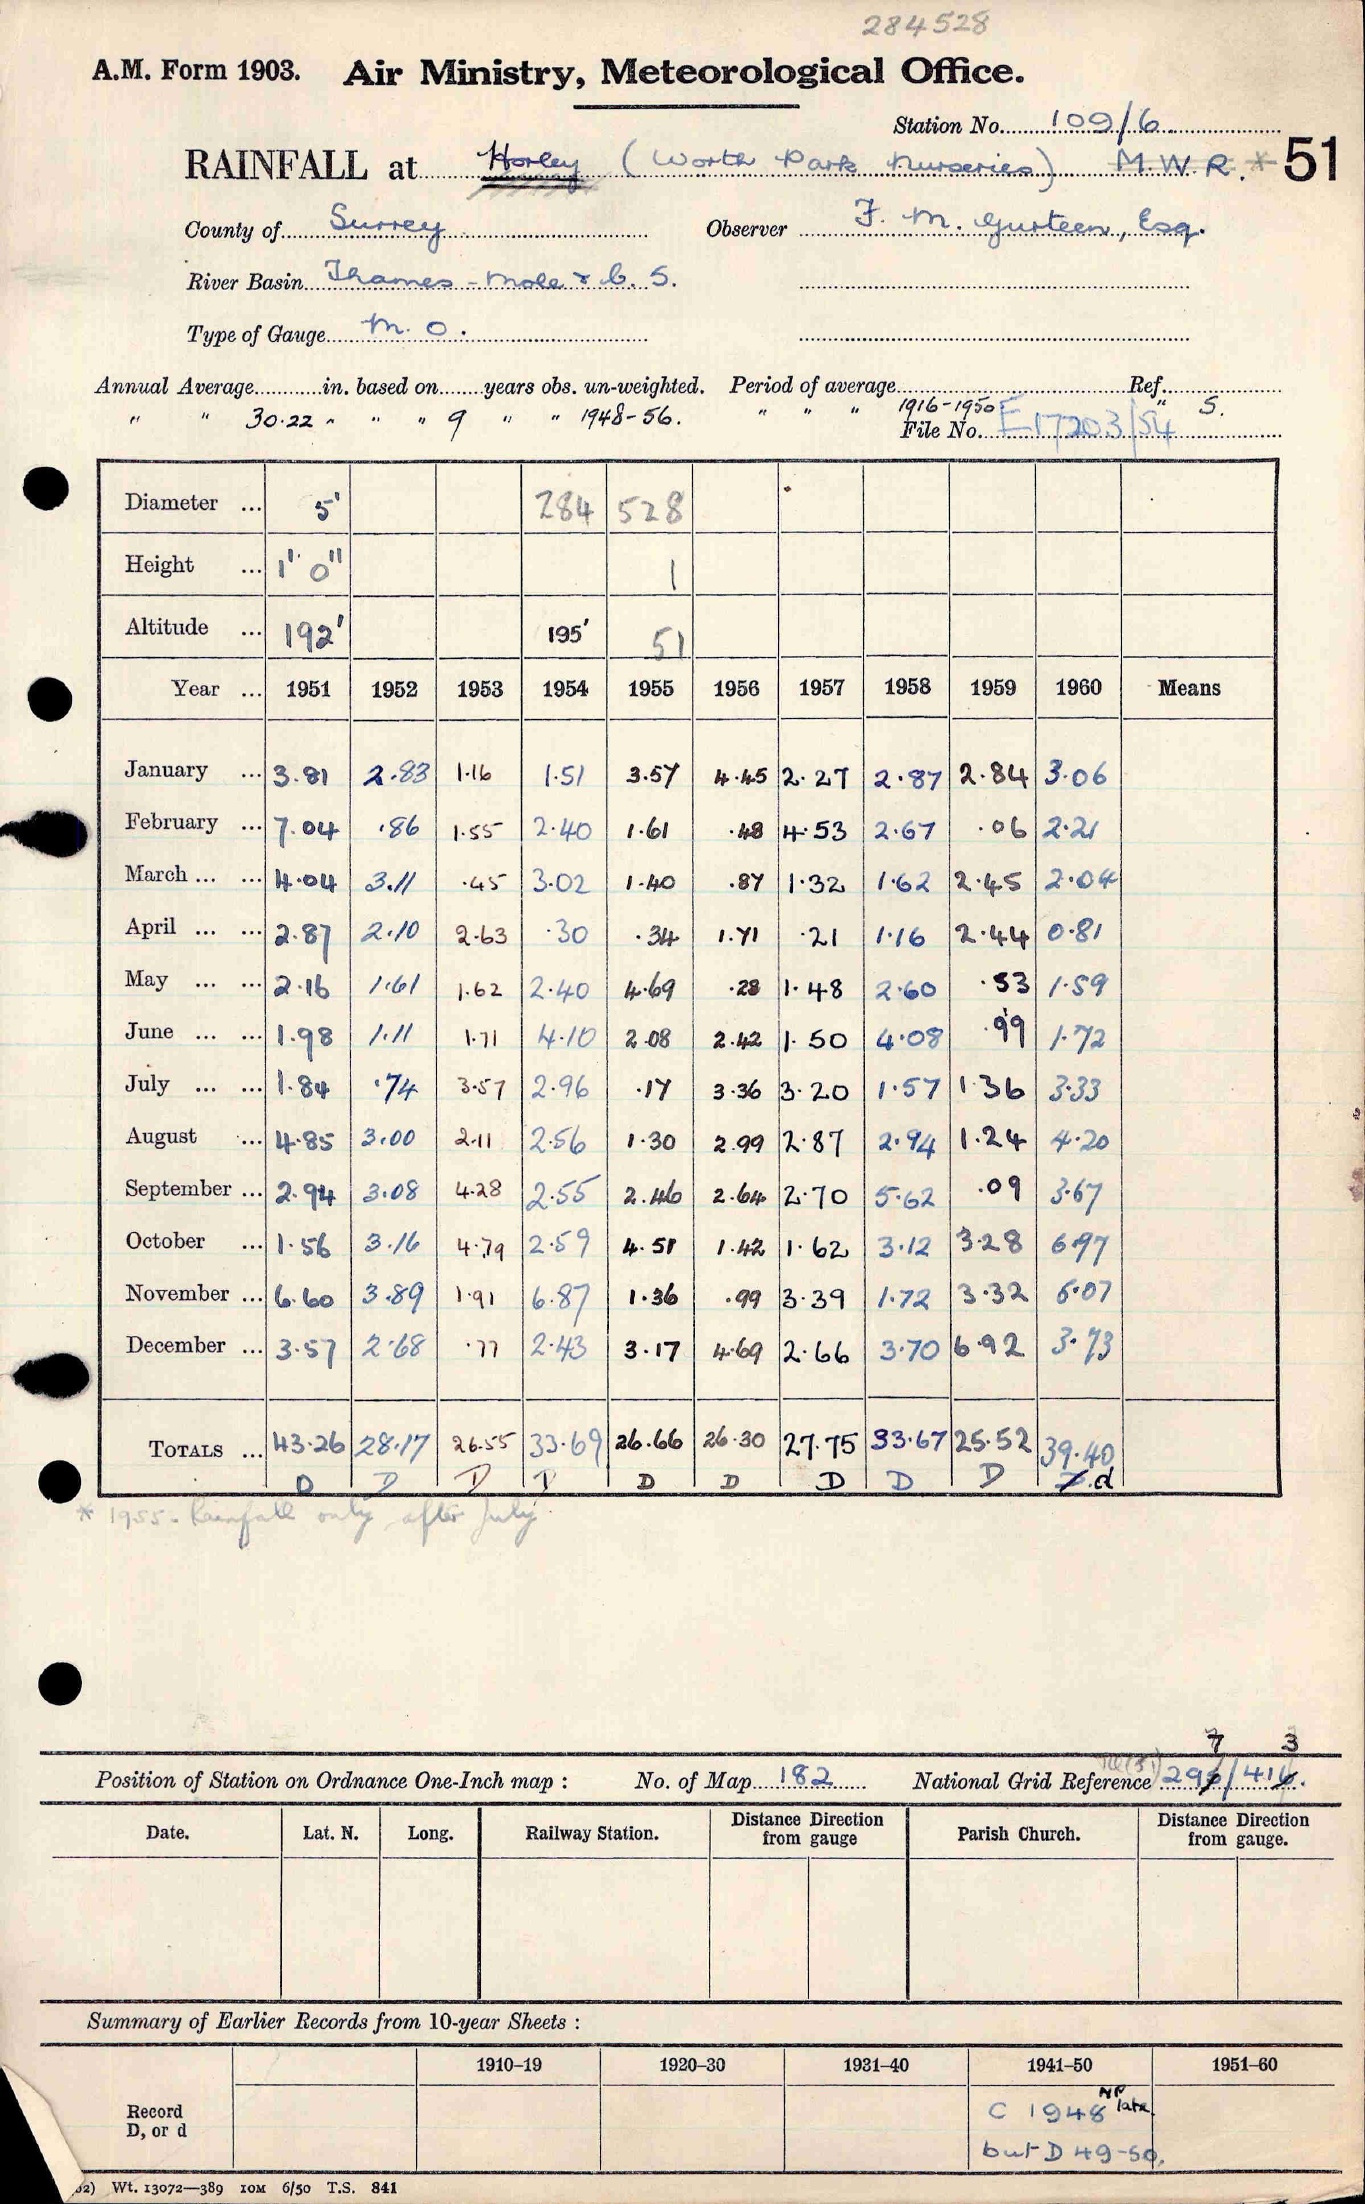 284528
A.M. Form 1903. Air Ministry, Meteorological Office.
Station No. 109/6
RAINFALL at Horley (Worth Park Nurseries) M.W.R.* 51
County of Surrey Observer F. M. Gurteen, Esq.
River Basin Thames - Mole & b. S.
Type of Gauge M. O.
Annual Average in. based on years obs. un-weighted. Period of average Ref.
" " 30.22 " " " 9 " " 1948-56. " " " 1916-1950 " S.
File No. E17203/54
Diameter ... 5' 284 528
Height ... 1' 0" 1
Altitude ... 192' 195' 51
Year ... 1951 1952 1953 1954 1955 1956 1957 1958 1959 1960 Means
January ... 3.81 2.83 1.16 1.51 3.57 4.45 2.27 2.87 2.84 3.06
February ... 7.04 .86 1.55 2.40 1.61 .48 4.53 2.67 .06 2.21
March ... ... 4.04 3.11 .45 3.02 1.40 .87 1.32 1.62 2.45 2.04
April ... ... 2.87 2.10 2.63 .30 .34 1.71 .21 1.16 2.44 0.81
May ... ... 2.16 1.61 1.62 2.40 4.69 .28 1.48 2.60 .53 1.59
June ... ... 1.98 1.11 1.71 4.10 2.08 2.42 1.50 4.08 .99 1.72
July ... ... 1.84 .74 3.57 2.96 .17 3.36 3.20 1.57 1.36 3.33
August ... 4.85 3.00 2.11 2.56 1.30 2.99 2.87 2.94 1.24 4.20
September ... 2.94 3.08 4.28 2.55 2.46 2.64 2.70 5.62 .09 3.67
October ... 1.56 3.16 4.79 2.59 4.51 1.42 1.62 3.12 3.28 6.97
November ... 6.60 3.89 1.91 6.87 1.36 .99 3.39 1.72 3.32 6.07
December ... 3.57 2.68 .77 2.43 3.17 4.69 2.66 3.70 6.92 3.73
TOTALS ... 43.26 28.17 26.55 33.69 26.66 26.30 27.75 33.67 25.52 39.40
D D D D D D D D D d
* 1955 - Rainfall only after July.
7 3
Position of Station on Ordnance One-Inch map : No. of Map 182 National Grid Reference 296/416.
Date. Lat. N. Long. Railway Station. Distance Direction from gauge Parish Church. Distance Direction from gauge.
Summary of Earlier Records from 10-year Sheets :
1910–19 1920–30 1931–40 1941–50 1951–60
Record D, or d
C 1948 NP late
but D 49-50.
Wt. 13072—389 10M 6/50 T.S. 841